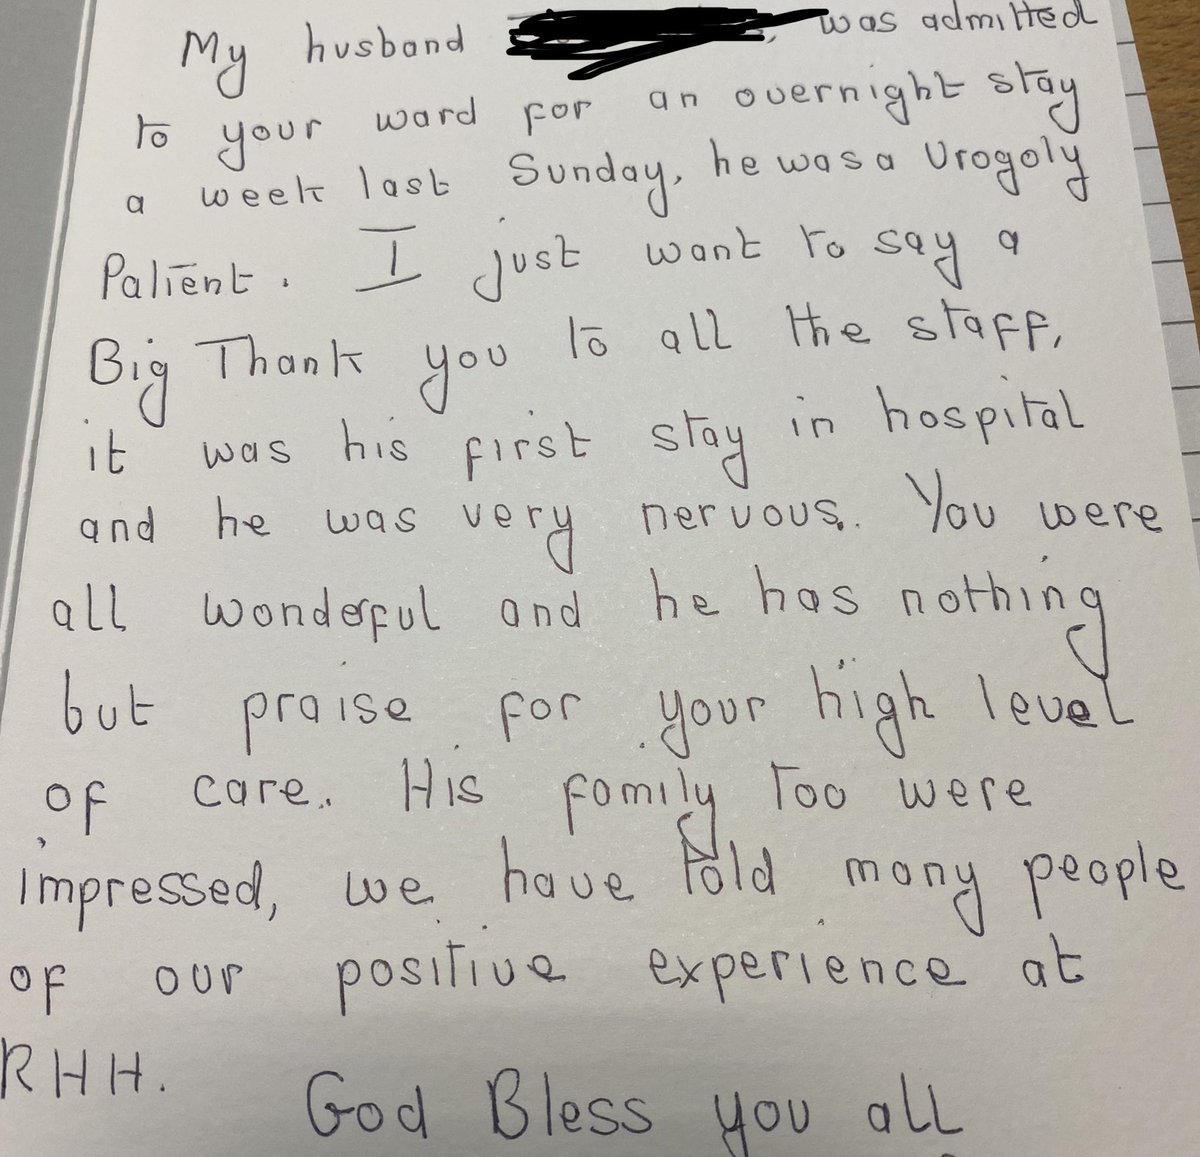 My husband was admitted
to your ward for an overnight stay
a week last Sunday, he was a Urogoly
Patient. I just want to say a
Big Thank you to all the staff,
it was his first stay in hospital
and he was very nervous. You were
all wonderful and he has nothing
but praise for your high level
of care. His family too were
impressed, we have told many people
of our positive experience at
RHH.
God Bless you all